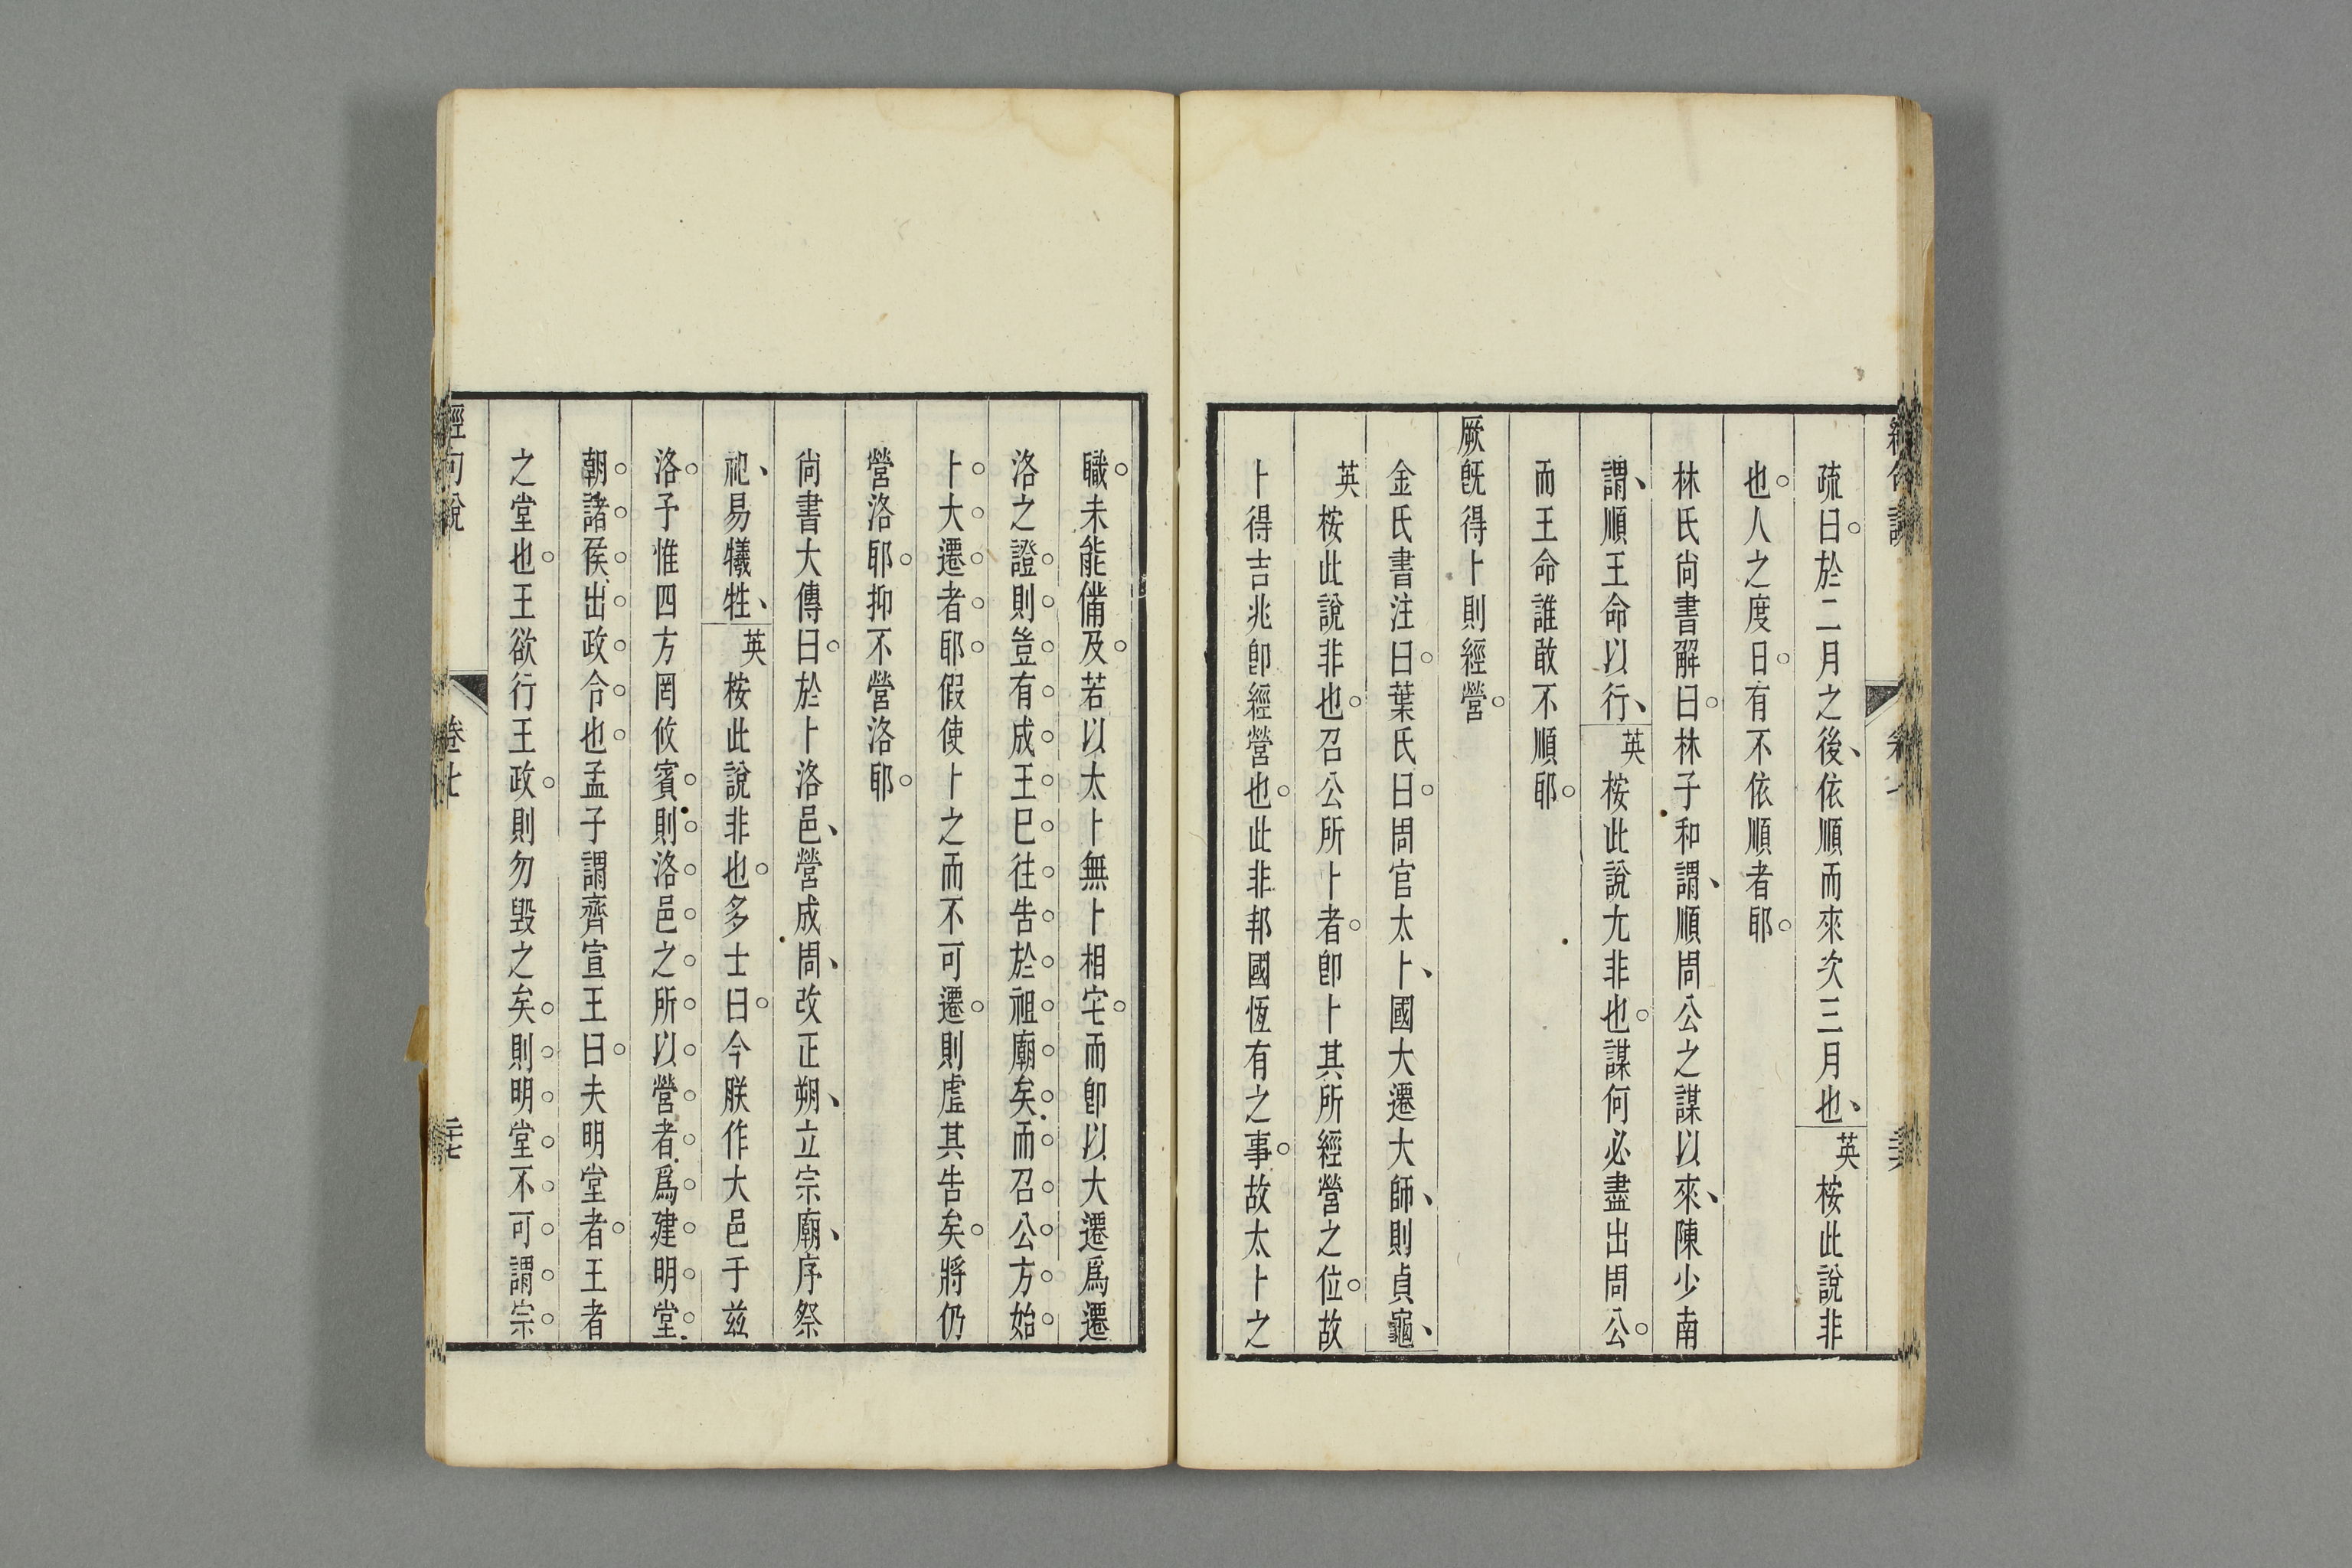 疏曰。於二月之後、依順而來次三月也、英桉此說非
也。人之度日。有不依順者耶。
林氏尙書解曰。林子和謂、順周公之謀以來、陳少南
謂、順王命以行、英桉此說尤非也。謀何必盡出周公。
而王命誰敢不順耶。
厥旣得卜則經營。
金氏書注曰。葉氏曰。周官太卜、國大遷大師、則貞龜、
英桉此說非也。召公所卜者。卽卜其所經營之位。故
卜得吉兆卽經營也。此非邦國恆有之事。故太卜之
職。未能備及。若以太卜無卜相宅。而卽以大遷爲遷
洛之證。則豈有成王已往告於祖廟矣。而召公方始
卜大遷者耶。假使卜之而不可遷。則虛其告矣。將仍
營洛耶。抑不營洛耶。
尙書大傳曰。於卜洛邑、營成周、改正朔、立宗廟、序祭
祀、易犧牲、英桉此說非也。多士曰。今朕作大邑于玆
洛。予惟四方罔攸賓。則洛邑之所以營者。爲建明堂。
朝諸侯、出政令也。孟子謂齊宣王曰。夫明堂者。王者
之堂也。王欲行王政。則勿毀之矣。則明堂不可謂宗
經句說
卷七
二十七